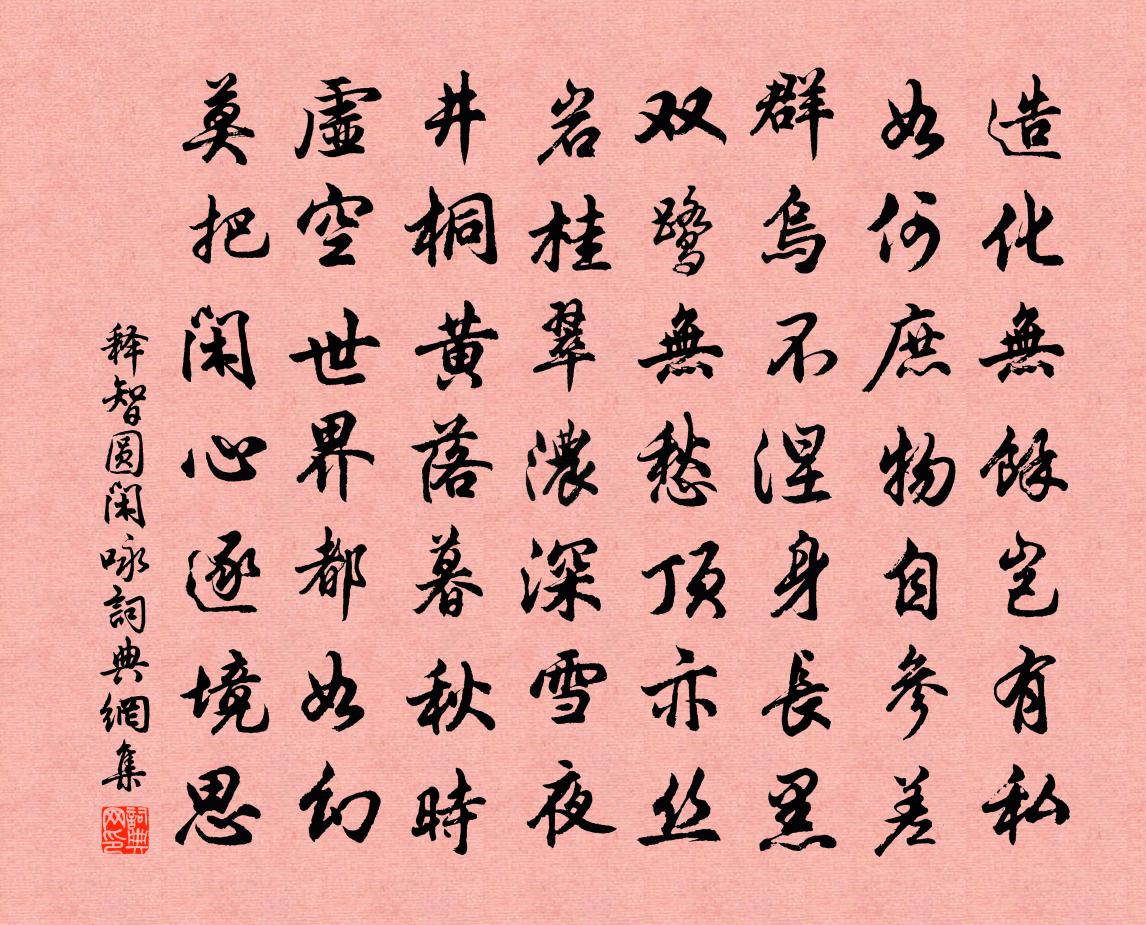 造化無餘岂有私
如何庶物自參差
群烏不涅身長黑
双鹭無愁頂亦丝
岩桂翠濃深雪夜
井桐黄落暮秋時
虛空世界都如幻
莫把閑心逐境思
释智圆閑咏詞典網集
詞典网印